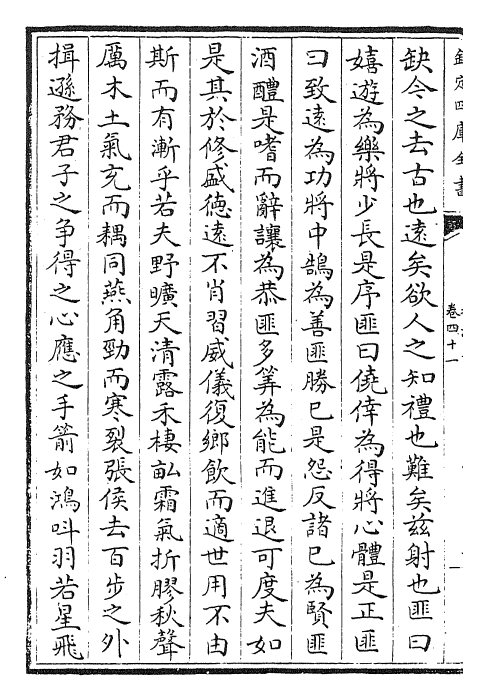 欽定四庫全書
卷四十一
一
缺今之去古也遠矣欲人之知禮也難矣兹射也匪曰
嬉遊為樂將少長是序匪曰僥倖為得將心體是正匪
曰致遠為功將中鵠為善匪勝已是怨反諸已為賢匪
酒醴是嗜而辭讓為恭匪多筭為能而進退可度夫如
是其於修盛徳遠不肖習威儀復鄉飲而適世用不由
斯而有漸乎若夫野曠天清露禾棲畝霜氣折膠秋聲
厲木土氣充而耦同燕角勁而寒裂張侯去百步之外
揖遜務君子之争得之心應之手箭如鴻呌羽若星飛